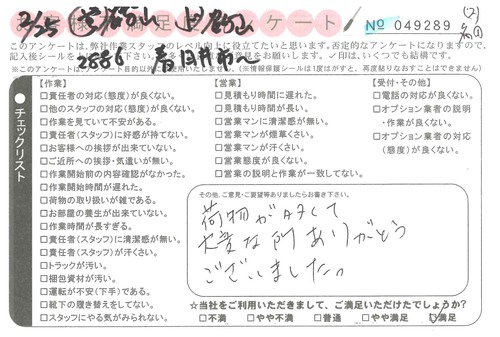 2/25
お客様満足アンケート
№ 049289
このアンケートは、弊社作業スタッフのレベル向上に役立てたいと思います。否定的なアンケートになりますので、
2886 春日井市へ
チェックリスト
【作業】
□責任者の対応(態度)が良くない。
□他のスタッフの対応(態度)が良くない。
□作業を見ていて不安がある。
□責任者(スタッフ)に好感が持てない。
□お客様への挨拶が出来ていない。
□ご近所への挨拶・気遣いが無い。
□作業開始前の内容確認がなかった。
□作業開始時間が遅れた。
□荷物の取り扱いが雑である。
□お部屋の養生が出来ていない。
□作業時間が長すぎる。
□責任者(スタッフ)に清潔感が無い。
□責任者(スタッフ)が汗くさい。
□トラックが汚い。
□梱包資材が汚い。
□運転が不安(下手)である。
□靴下の履き替えをしてない。
□スタッフにやる気がみられない。
【営業】
□見積もり時間に遅れた。
□見積もり時間が長い。
□営業マンに清潔感が無い。
□営業マンが煙草くさい。
□営業マンが汗くさい。
□営業態度が良くない。
□営業の説明と作業が一致してない。
【受付・その他】
□電話の対応が良くない。
□オプション業者の説明
・作業が良くない。
□オプション業者の対応
(態度)が良くない。
その他、ご意見・ご要望等ありましたらお書き下さい。
荷物が多くて
大変な所ありがとう
ございました。
☆当社をご利用いただきまして、ご満足いただけたでしょうか?
□不満 □やや不満 □普通 □やや満足 □満足